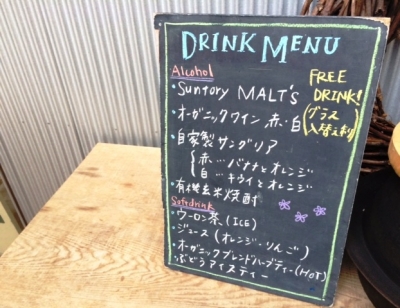 DRINK MENU
Alcohol
・Suntory MALT's
FREE DRINK!
・オーガニックワイン 赤・白
(グラス入替え制)
・自家製サングリア
赤…バナナとオレンジ
白…キウイとオレンジ
・有機玄米焼酎
Softdrink
・ウーロン茶(ICE)
・ジュース(オレンジ・りんご)
・オーガニックブレンドハーブティー(HOT)
・ぶどうアイスティー